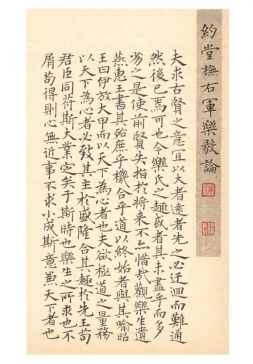 約堂撫右軍樂毅論
夫求古賢之意宜以大者遠者先之必迂迴而難通
然後已焉可也今樂氏之趣或者其未盡乎而多
劣之是使前賢失指於將來不亦惜哉觀樂生遺
燕惠王書其殆庶乎機合乎道以終始者與其喻昭
王曰伊放大甲而以天下為心者也夫欲極道之量務
以天下為心者必致其主於盛隆合其趣於先王苟
君臣同符斯大業定矣于斯時也樂生之所求也不
屑苟得則心無近事不求小成斯意兼天下者也